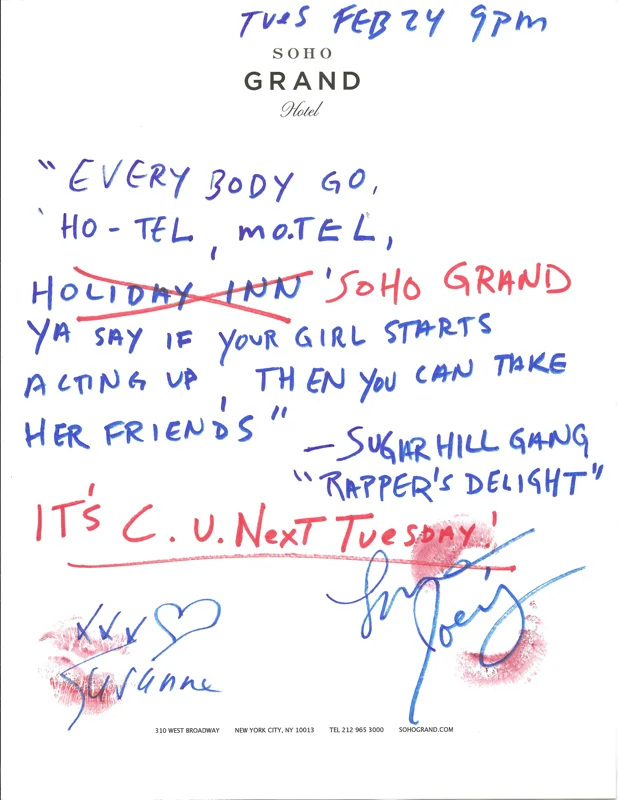 TUES FEB 24 9pm
SOHO
GRAND
Hotel
"EVERY BODY GO,
'HO-TEL, MO.TEL,
HOLIDAY INN 'SOHO GRAND
YA SAY IF YOUR GIRL STARTS
ACTING UP, THEN YOU CAN TAKE
HER FRIENDS"
— SUGAR HILL GANG
"RAPPER'S DELIGHT"
IT'S C. U. NEXT TUESDAY!
Love, Joey
xxx
Susanne
310 WEST BROADWAY NEW YORK CITY, NY 10013 TEL 212 965 3000 SOHOGRAND.COM